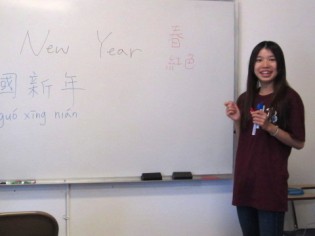 New Year
春
紅色
國新年
guó xīng nián